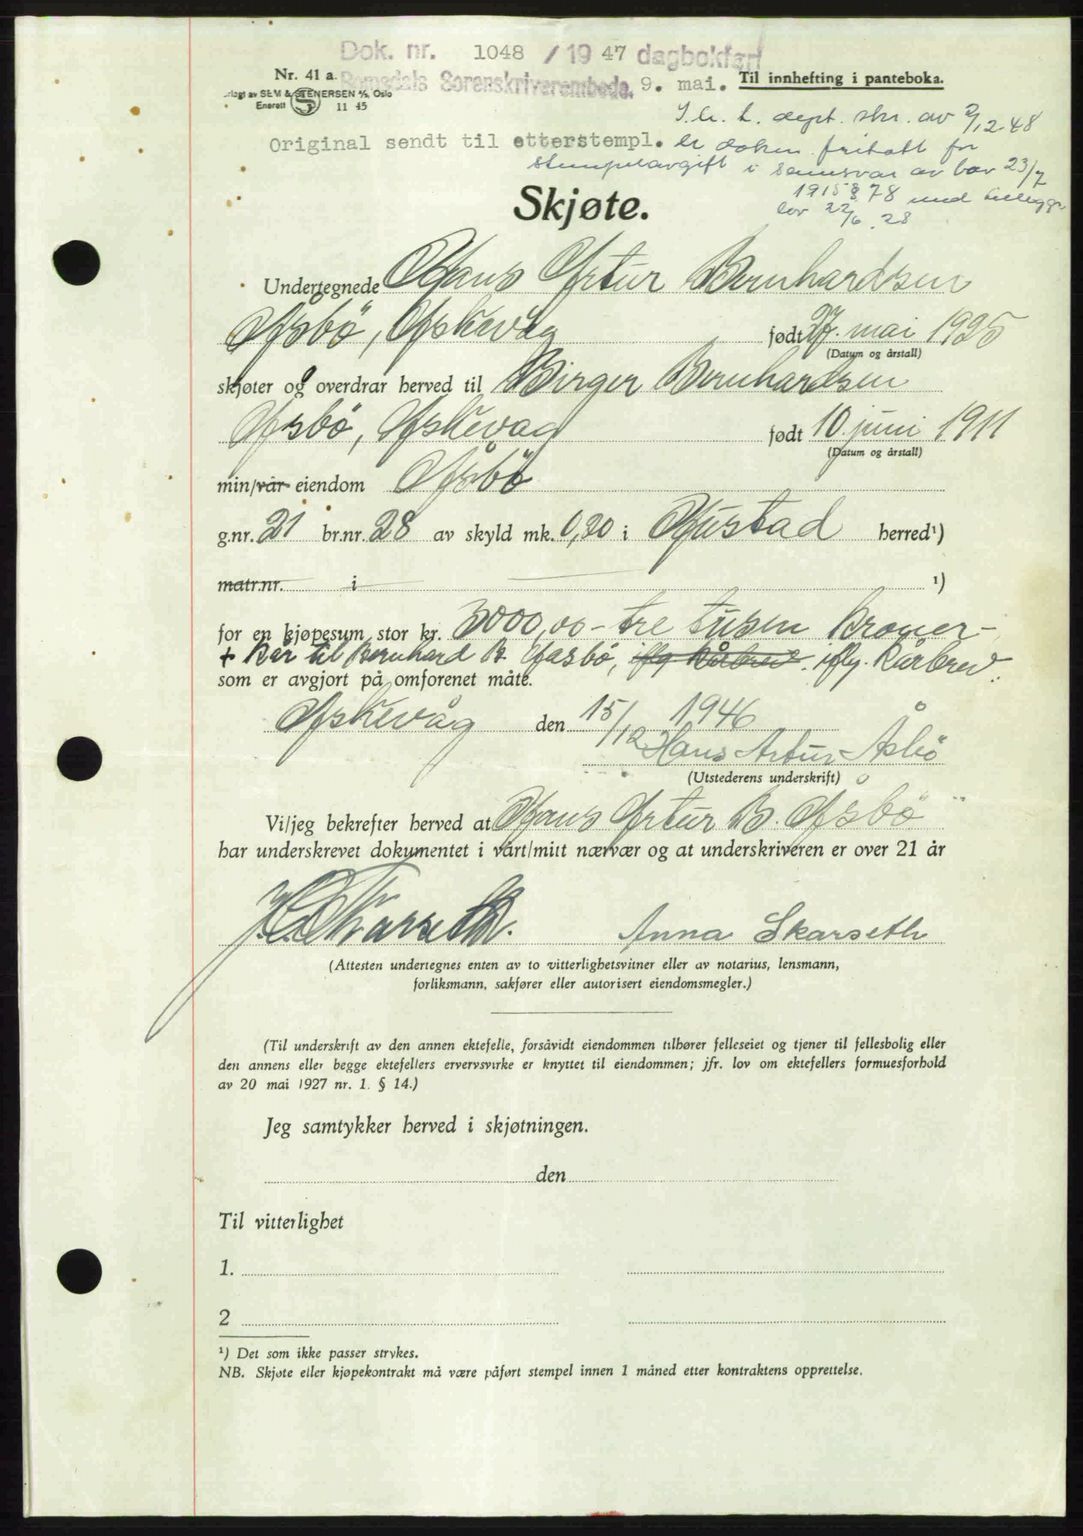 Dok. nr. 1048 / 19 47 dagbokført
Nr. 41 a.
Romsdals Sorenskriverembede. 9. mai. Til innhefting i panteboka.
Forlagt av SEM & STENERSEN A/S Oslo
Enerett S 11 45
Original sendt til etterstempl.
I.h.t. dept. skr. av 2/12-48
er dokm. fritatt for
stempelavgift i samsvar av lov 23/7
1915 § 78 med tillegg
lov 22/6 28
Skjøte.
Undertegnede Hans Artur Bernhardsen
Åsbö, Askevåg født 27. mai 1925
(Datum og årstall)
skjøter og overdrar herved til Birger Bernhardsen
Åsbö, Askevåg født 10. juni 1911
(Datum og årstall)
min/vår eiendom Åsbö
g.nr. 21 br.nr. 28 av skyld mk. 0,20 i Hustad herred¹)
matr.nr. i ¹)
for en kjøpesum stor kr. 3000,00 - tre tusen kroner -
+ kår til Bernhard B. Aasbö, iflg kårbrev. iflg. kårbrev.
som er avgjort på omforenet måte.
Askevåg den 15/12 1946
Hans Artur Åsbö
(Utstederens underskrift)
Vi/jeg bekrefter herved at Hans Artur B. Åsbö
har underskrevet dokumentet i vårt/mitt nærvær og at underskriveren er over 21 år
Skarseth. Anna Skarseth
(Attesten undertegnes enten av to vitterlighetsvitner eller av notarius, lensmann,
forliksmann, sakfører eller autorisert eiendomsmegler.)
(Til underskrift av den annen ektefelle, forsåvidt eiendommen tilhører felleseiet og tjener til fellesbolig eller
den annens eller begge ektefellers ervervsvirke er knyttet til eiendommen; jfr. lov om ektefellers formuesforhold
av 20 mai 1927 nr. 1. § 14.)
Jeg samtykker herved i skjøtningen.
den
Til vitterlighet
1.
2
¹) Det som ikke passer strykes.
NB. Skjøte eller kjøpekontrakt må være påført stempel innen 1 måned etter kontraktens opprettelse.